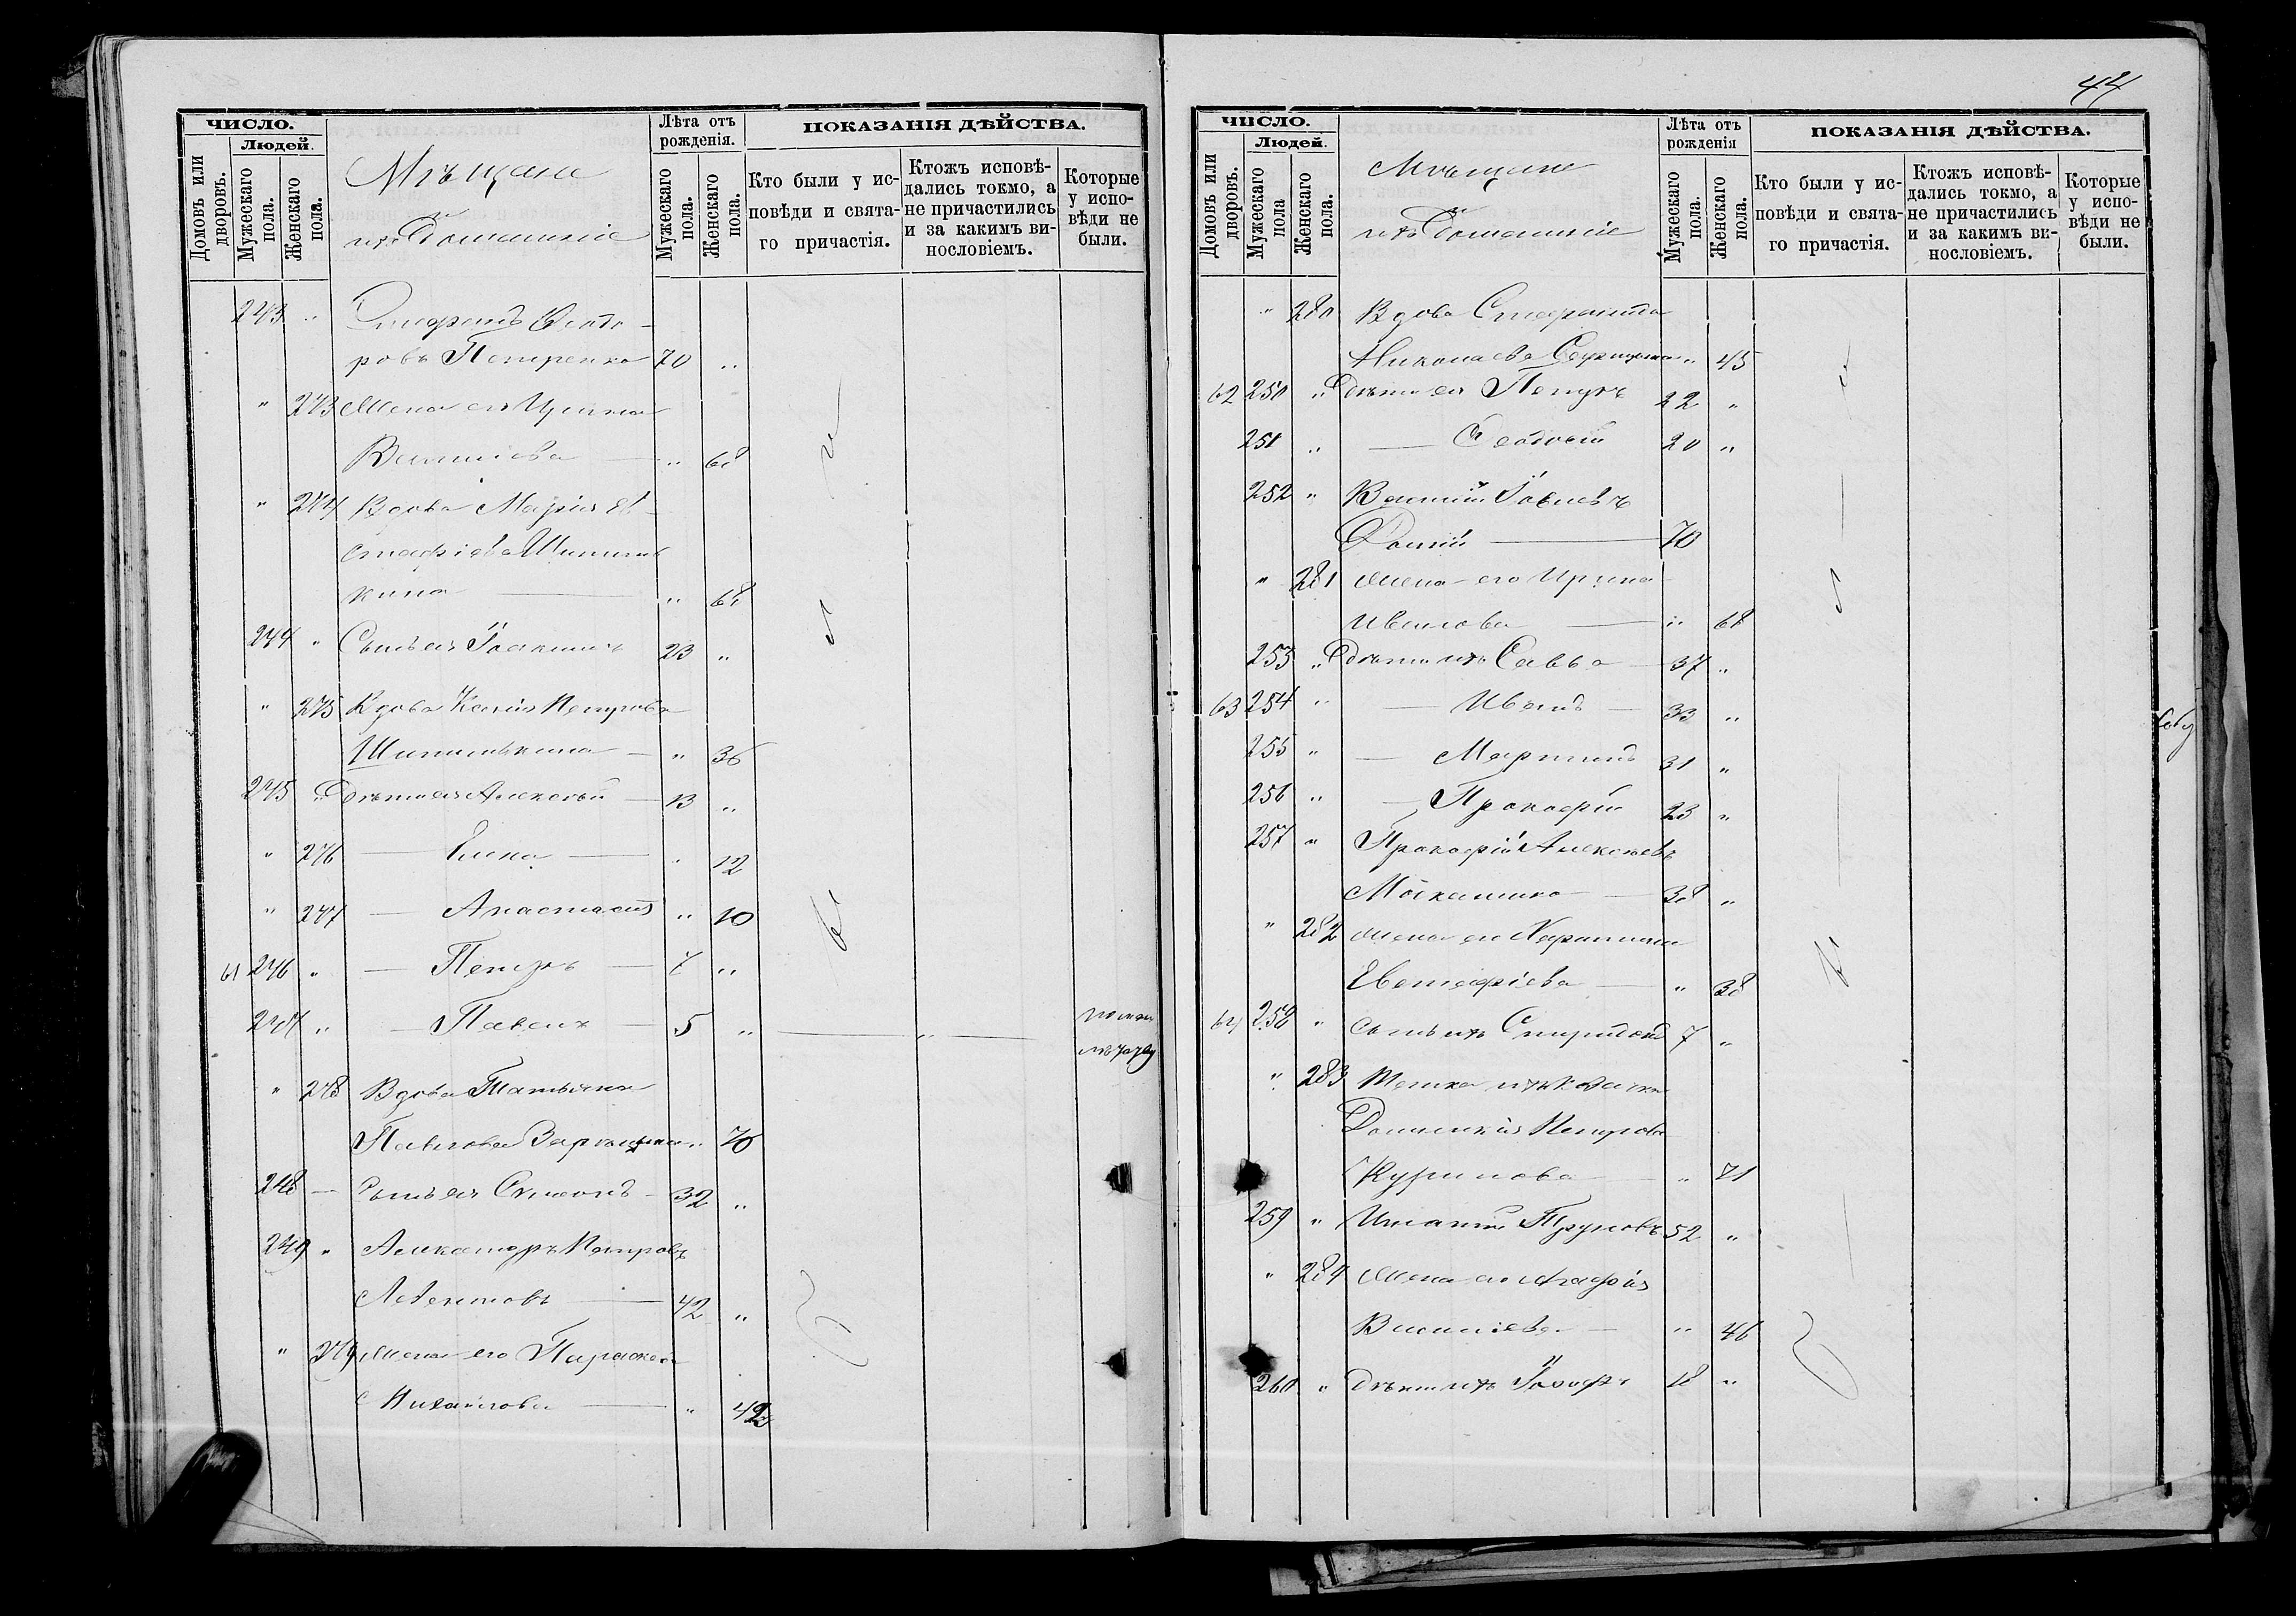 ЧИСЛО.
Людей.
Домовъ или дворовъ.
Мужескаго пола.
Женскаго пола.
Мѣщане
и их Домашніе
Лѣта отъ рожденія.
Мужескаго пола.
Женскаго пола.
ПОКАЗАНІЯ ДѢЙСТВА.
Кто были у исповѣди и святаго причастія.
Ктожъ исповѣдались токмо, а не причастились и за какимъ винословіемъ.
Которые у исповѣди не были.
243 " Стефанъ Ѳеодо-
ровъ Петренко 70 "
" 273 Жена его Ирина
Василіева — " 68
" 274 Вдова Марія Ев-
стафіева
кина — " 68
244 " Сынъ ея Іоакимъ 23 "
" 275 Вдова Ксенія Петрова
— " 36
245 " Дѣти ея Алексѣй — 13 "
" 276 — Елена — " 12
" 277 — Анастасія " 10
61 246 " — Петръ — 7 "
247 " — Павелъ — 5 " — " —
" 278 Вдова Татьяна
Павлова " 70
248 — Сынъ ея Симеонъ - 32 "
249 " Александръ Петровъ
Леонтовъ — 42 "
" 279 Жена его Параскева
Михайлова — " 42
44
ЧИСЛО.
Людей.
Домовъ или дворовъ.
Мужескаго пола
Женскаго пола.
Мѣщане
и их Домашніе
Лѣта отъ рожденія
Мужескаго пола.
Женскаго пола.
ПОКАЗАНІЯ ДѢЙСТВА.
Кто были у исповѣди и святаго причастія.
Ктожъ исповѣдались токмо, а не причастились и за какимъ винословіемъ.
Которые у исповѣди не были.
" 280 Вдова Стефанида
Николаева " 45
62 250 " Дѣти ея Петръ 22 "
251 " — Ѳеодосій 20 "
252 " Василій Іовлевъ
— 70
" 281 Жена его Ирина
Иванова — " 68
253 " Дѣти ихъ Савва — 37 "
63 254 " — Иванъ — 33 "
255 " — Мартинъ 31 "
256 " — Прокофій 23 "
257 " Прокофій Алексѣевъ
— 38 "
" 282 Жена его Харитина
Евстафіева — " 38
64 258 " Сынъ ихъ Спиридонъ 7 "
" 283
Домникія Петрова
— " 71
259 " Игнатій Труновъ 52 "
" 284 Жена его Агафія
Василіева — " 46
260 " Дѣти ихъ Іосифъ 18 "